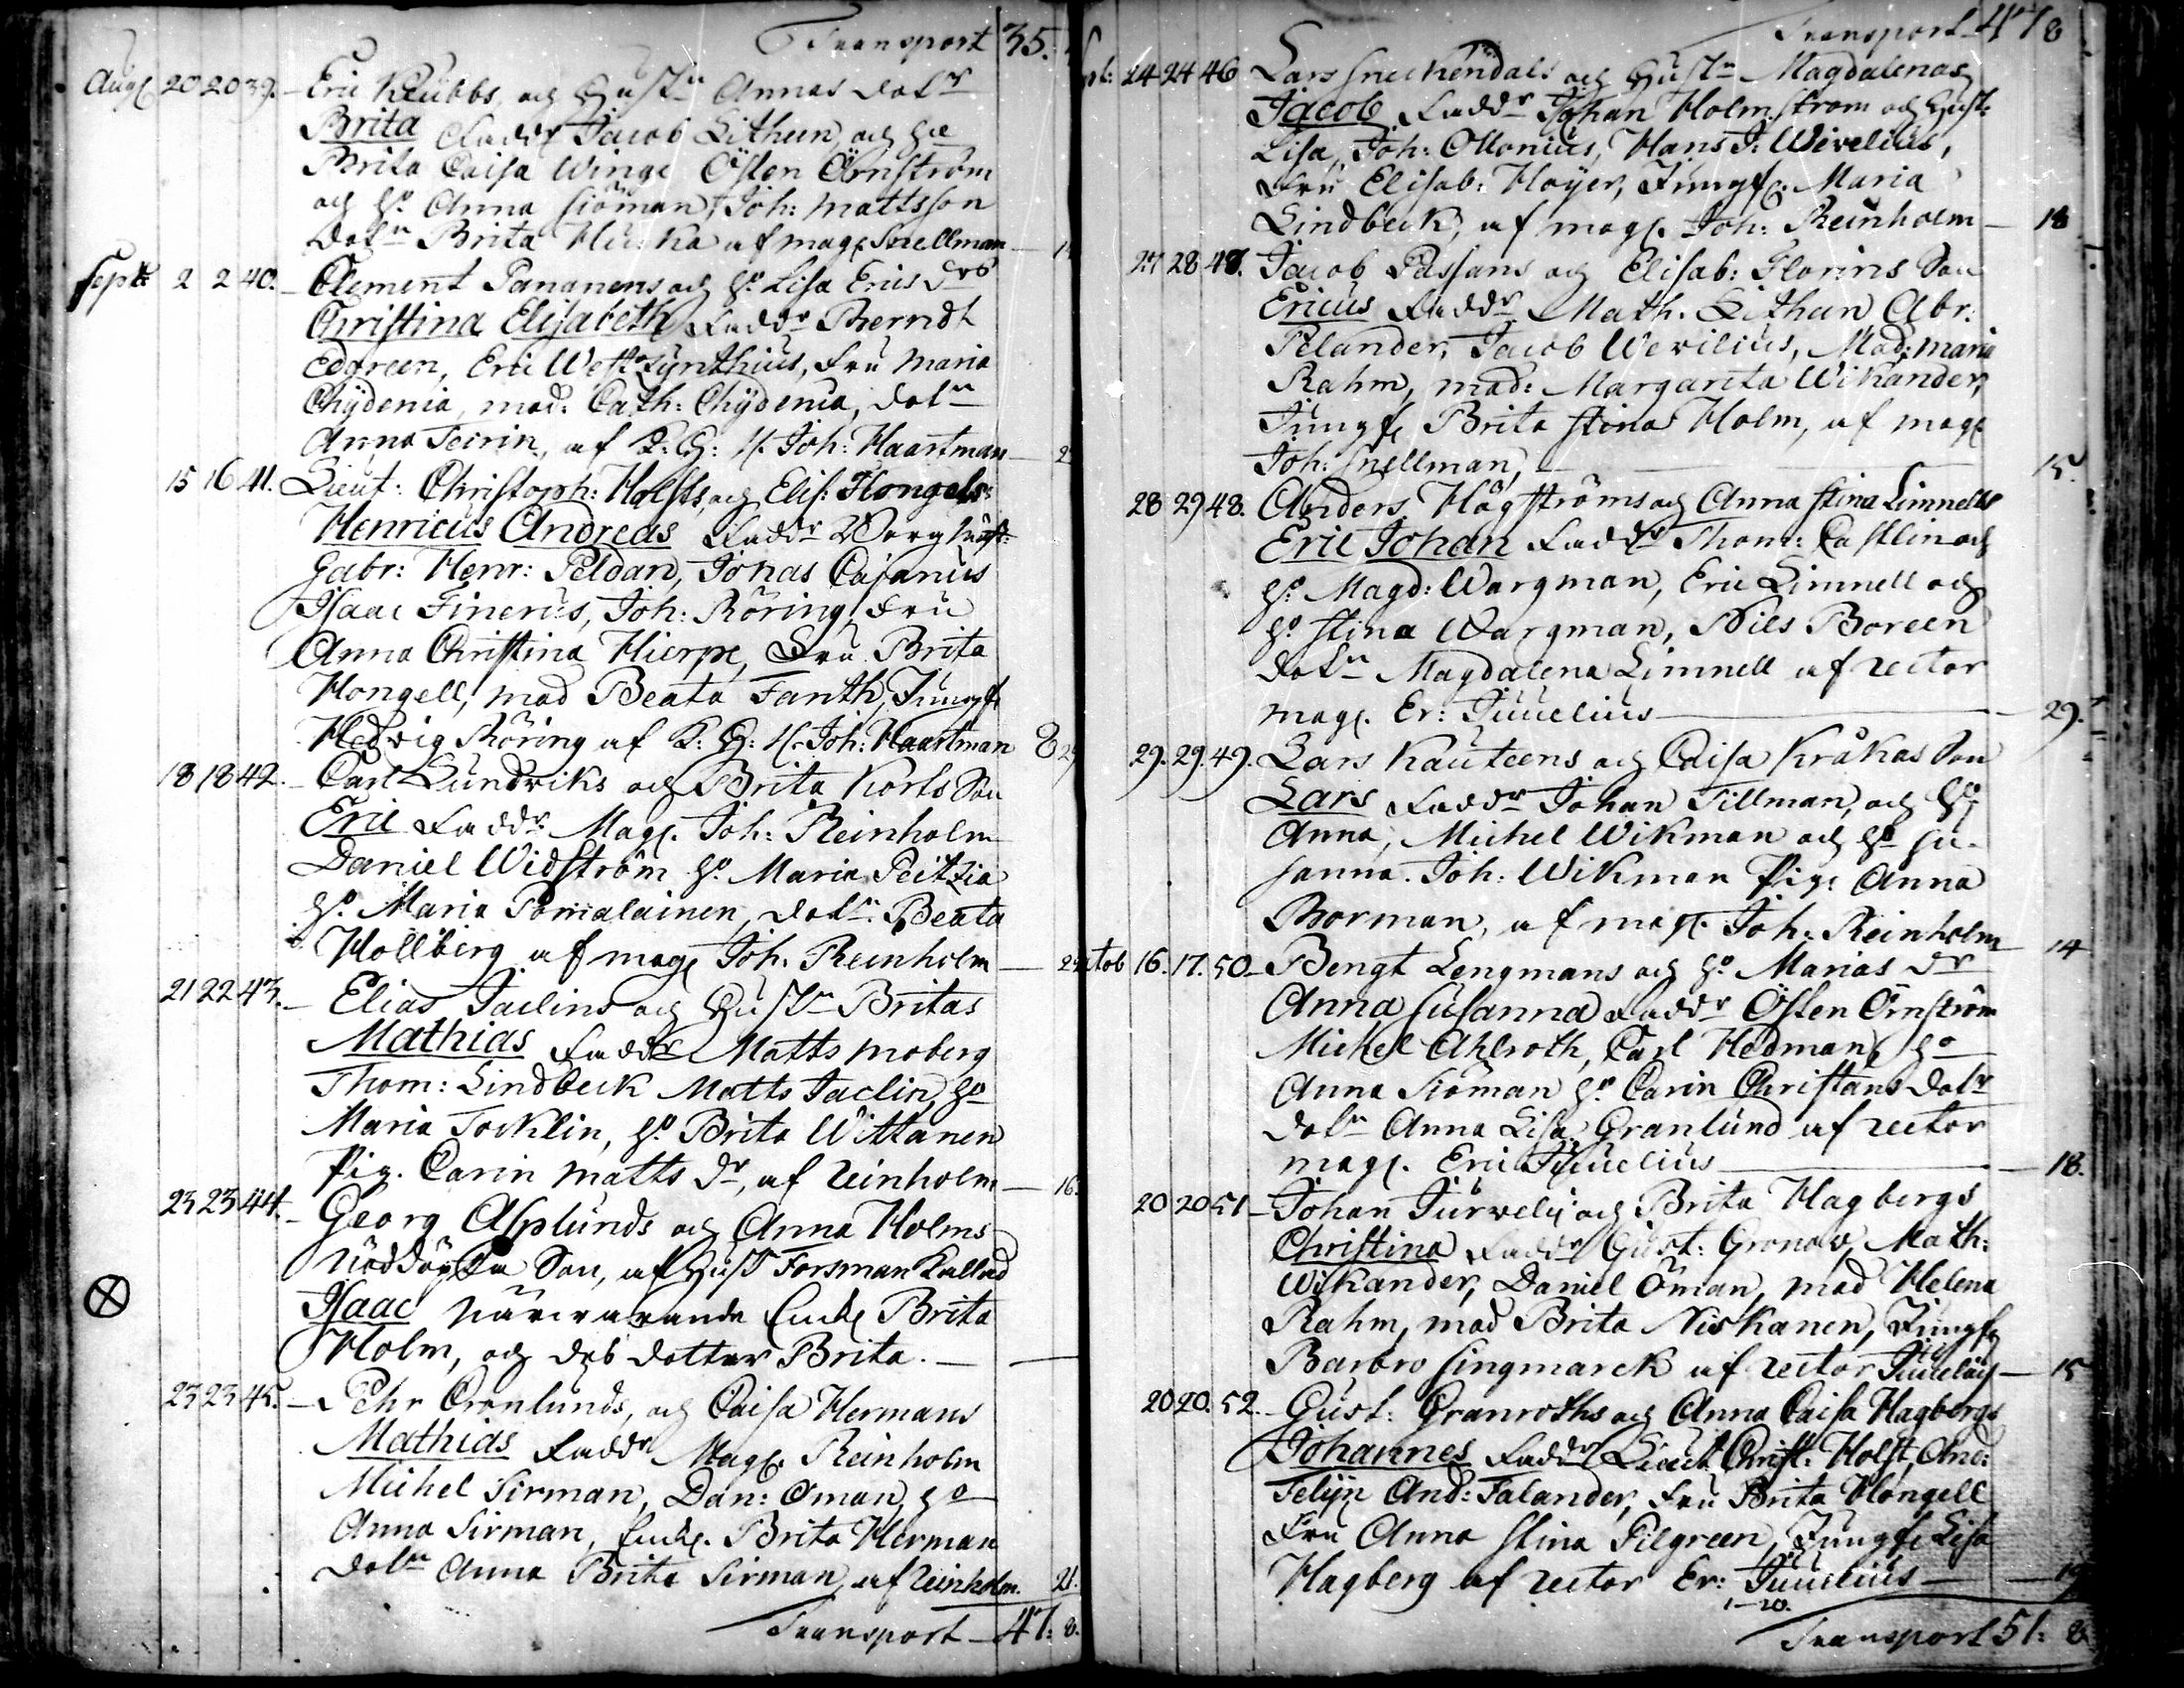 Transport 35.
Aug. 20 20 39. Eric Klubbs, och Hust. Annas dotr
Brita Faddr Jacob Litheen, och H.
Brita Caisa Winge Östen Örnström
och H. Anna Siöman, Joh: Mattsson
dotn Brita af mag. Snellman
Sept: 2 2 40. Clement Pananens och H. Lisa Erics dr
Christina Elisabeth Faddr Berndt
Edgreen, Eric West Zynthius, Fru Maria
Chydenia, mad: Cath: Chydenia, dotn
Anna Teirin, af Joh: Haartman
15 16 41. Lieut: Christoph: Holsts, och Elis: Hongels
Henricus Andreas Faddr
Gabr: Henr: Peldan, Jonas Cajanus
Isaac Finerus, Joh: Röring, Fru
Anna Christina Hierpe, Fru Brita
Hongell, mad Beata Fanth, Jungf.
Hedvig Röring af Joh: Haartman
18 18 42. Carl Lundviks och Brita Korts Son
Eric Faddr Mag. Joh: Reinholm
Daniel Widström H. Maria Peitzia
H. Maria Pomalainen, dotn. Beata
Hollberg af mag. Joh. Reinholm
21 22 43. Elias Jaclins och Hustr Britas
Mathias Faddr Matts Moberg
Thom: Lindbeck Matts Jaclin, H.
Maria Jocklin, H. Brita Wittanen
Pig. Carin Matts dr, af Reinholm 16.
23 23 44. Georg Asplunds och Anna Holms
nöddöpta Son, af Hust Forsman kallad
Isaac närvarande Enck. Brita
Holm, och des dotter Brita.
23 23 45. Pehr Cronlunds, och Caisa Hermans
Mathias Faddr Mag. Reinholm
Michel Sirman, Dan: Öman, H.
Anna Sirman, Enck. Brita Herman
dotn Anna Brita Sirman, af Reinholm. 21.
Transport 47: 8.
Transport 47 8
24 24 46 Lars Sneckendals och Hustr Magdalenas
Jacob Faddr Johan Holmström och Hust:
Lisa, Joh: Ollonius, Hans J: Wivelius,
Fru Elisab: Hoÿer, Jungf. Maria
Lindbeck, af mag. Joh: Reinholm 18
27 28 47. Jacob Passans och Elisab: Florins Son
Ericus Faddr Math. Lithæn Abr:
Pelander, Jacob Wevilius, Mad: Maria
Rahm, mad: Margareta Wikander,
Jungf. Brita Stina Holm, af mag.
Joh: Snellman, 15.
28 29 48. Anders Högströms och Anna Stina Limnells
Eric Johan Faddr Thom: Castlin och
H. Magd: Wargman, Eric Limnell och
H. Stina Wargman, Nils Boreen
dotn Magdalena Limnell af rector
mag. Er: Juuelius 29.
29. 29. 49. Lars Kauteens och Caisa Kråkas Son
Lars Faddr Johan Tillman, och H.
Anna, Michel Wikman och H. Su-
sanna. Joh: Wikman Pig: Anna
Borman, af mag. Joh: Reinholm 14
16. 17. 50. Bengt Lengmans och H. Marias dr
Anna Susanna Faddr Östen Örnström
Michel Ahlroth, Carl Hedman, H.
Anna Siöman H. Carin Christans dotr
dotn Anna Lisa Granlund af rector
mag. Eric Juuelius 18.
20 20 51 Johan Jurvelij och Brita Hagbergs
Christina Faddr Gust: Gronow, Math:
Wikander, Daniel Öman, mad Helena
Rahm, mad Brita Niskanen, Jungf.
Barbro Singmarck af rector Juuelius 15
20 20. 52. Gust: Granroths och Anna Caisa Hagbergs
Johannes Faddr Lieut. Christ: Holst, And:
Felijn And: Falander, Fru Brita Hongell
Fru Anna Stina Pilgreen, Jungf. Lisa
Hagberg af rector Er: Juuelius
Transport 51: 8